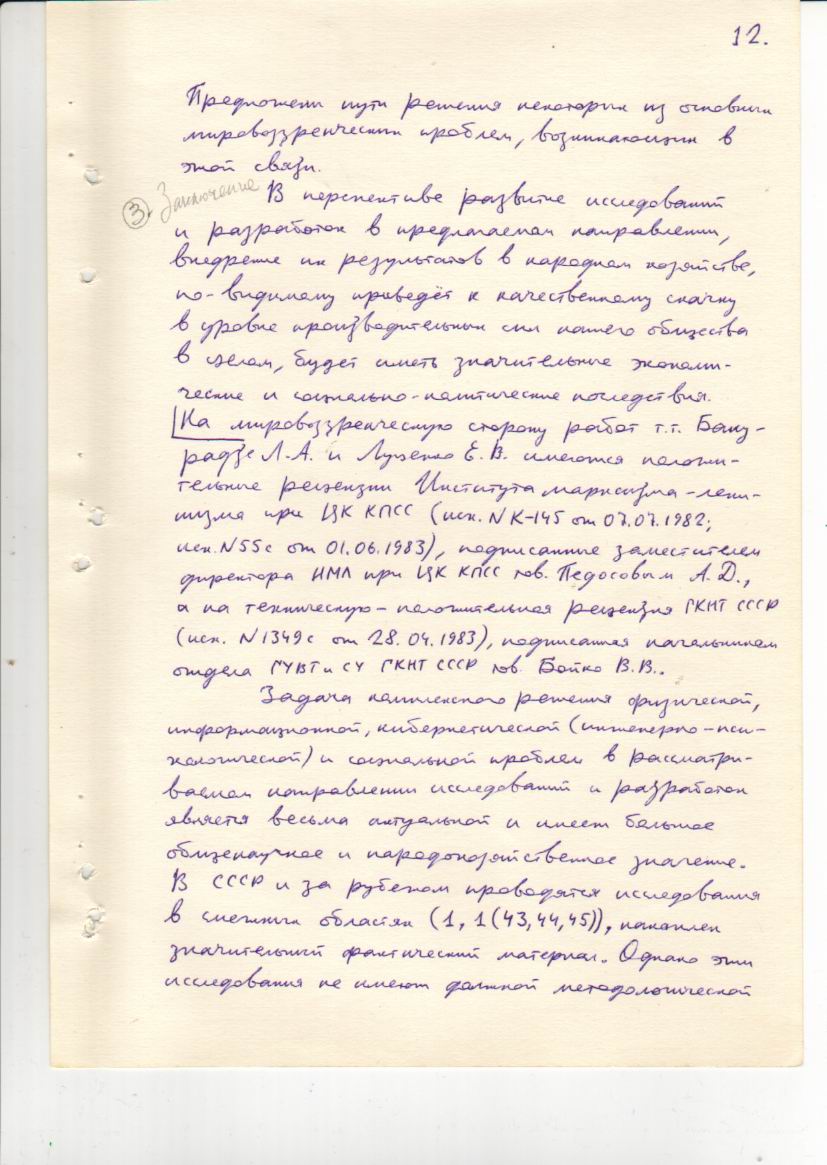 12.
Предложены пути решения некоторых из основных
мировоззренческих проблем, возникающих в
этой связи.
③. Заключение
В перспективе развитие исследований
и разработок в предлагаемом направлении,
внедрение их результатов в народном хозяйстве,
по-видимому приведёт к качественному скачку
в уровне производительных сил нашего общества
в целом, будет иметь значительные экономи-
ческие и социально-политические последствия.
На мировоззренческую сторону работ т.т. Баку-
радзе Л.А. и Луценко Е.В. имеются положи-
тельные рецензии Института марксизма-лени-
низма при ЦК КПСС (исх. N К-145 от 07.07.1982;
исх. N55с от 01.06.1983), подписанные заместителем
директора ИМЛ при ЦК КПСС тов. Педосовым А.Д.,
а на техническую - положительная рецензия ГКНТ СССР
(исх. N1349с от 28.04.1983), подписанная начальником
отдела ГУВТ и СУ ГКНТ СССР тов. Бойко В.В..
Задача комплексного решения физической,
информационной, кибернетической (инженерно-пси-
хологической) и социальной проблем в рассматри-
ваемом направлении исследований и разработок
является весьма актуальной и имеет большое
общенаучное и народнохозяйственное значение.
В СССР и за рубежом проводятся исследования
в смежных областях (1, 1(43,44,45)), накоплен
значительный фактический материал. Однако эти
исследования не имеют должной методологической